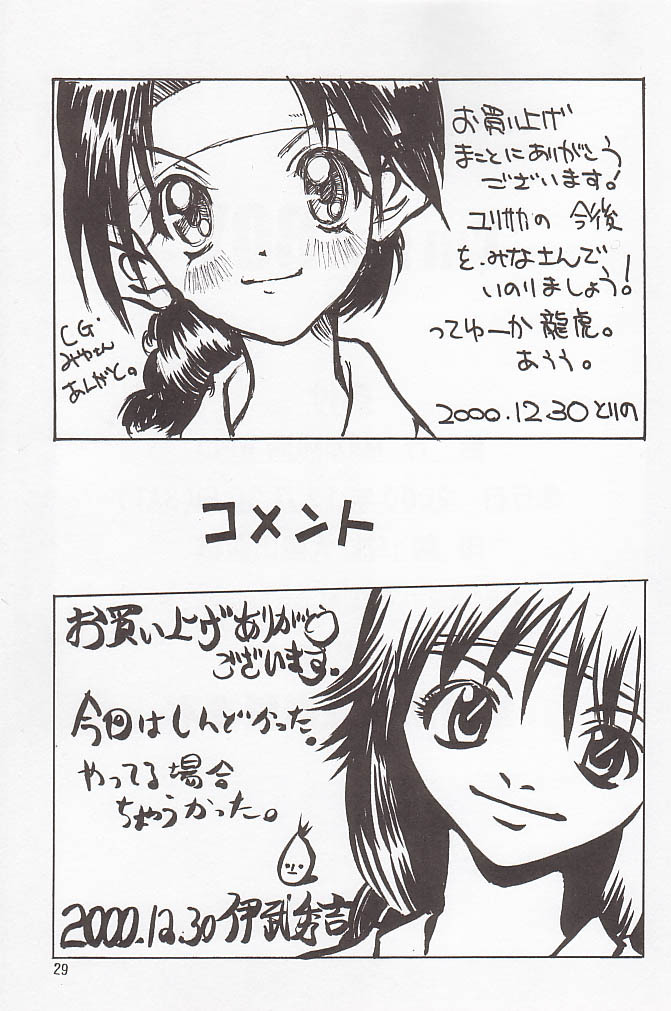 お買い上げ
まことにありがとう
ございます!
ユリサカの 今後
を、みなさんで
いのりましょう!
ってゆーか 龍虎。
あうう。
2000.12.30 とりの
CG・
みやさん
あんがと。
コメント
お買い上げありがとう
ございます。
今回はしんどかった。
やってる場合
ちゃうかった。
2000.12.30 伊武秀吉
29